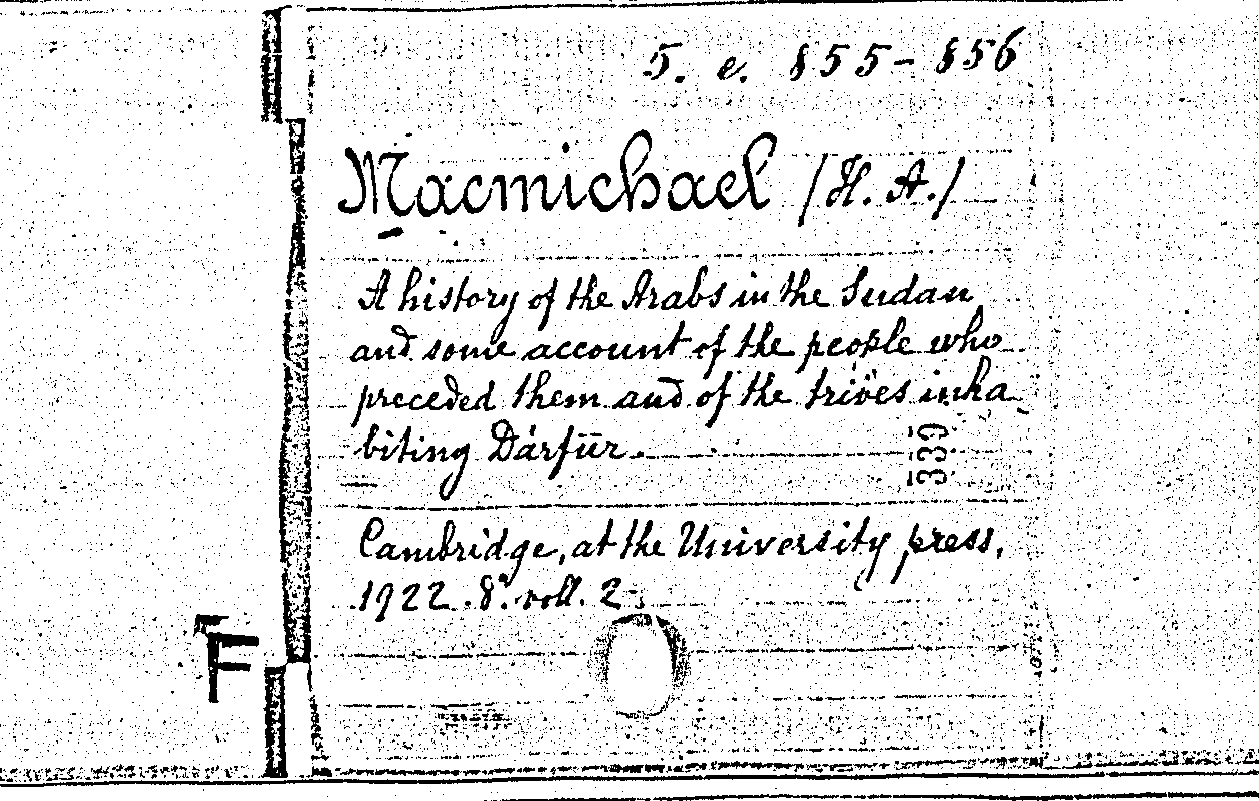 5. e. 855-856
Macmichael /H. A./
A history of the Arabs in the Sudan
and some account of the people who
preceded them and of the tribes inha-
biting Dárfūr.
339
Cambridge, at the University press,
1922. 8.° voll. 2
F